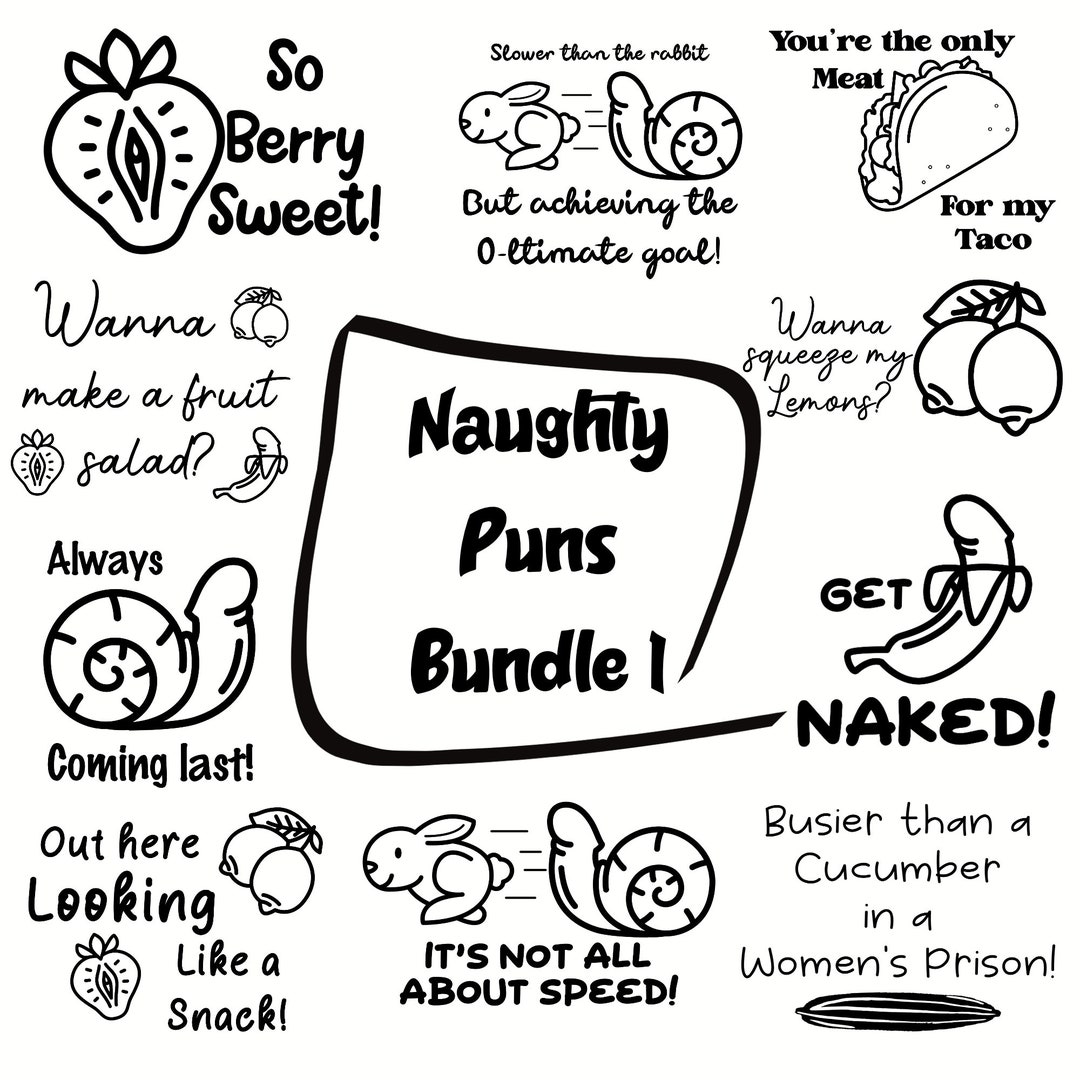 So
Berry
Sweet!
Slower than the rabbit
But achieving the
O-ltimate goal!
You're the only
Meat
For my
Taco
Wanna
make a fruit
salad?
Wanna
squeeze my
Lemons?
Naughty
Puns
Bundle 1
Always
Coming last!
GET
NAKED!
Out here
Looking
Like a
Snack!
IT'S NOT ALL
ABOUT SPEED!
Busier than a
Cucumber
in a
Women's Prison!